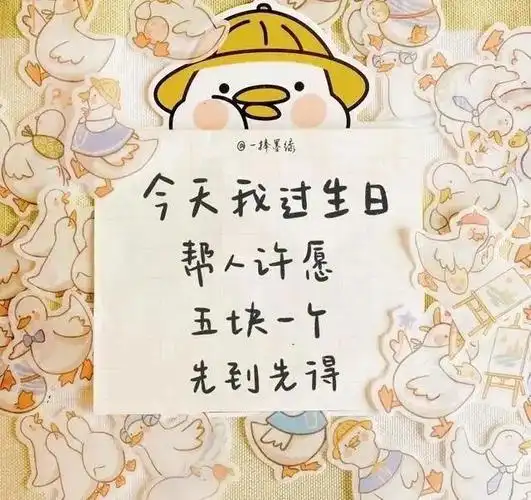 @一捧墨绿
今天我过生日
帮人许愿
五块一个
先到先得